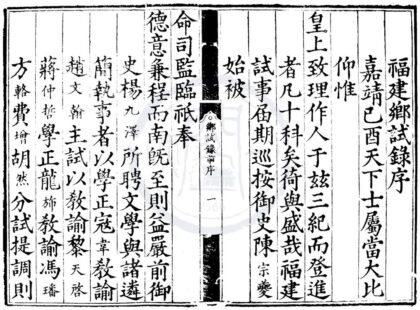 福建鄉試錄序
嘉靖己酉天下士屬當大比
仰惟
皇上致理作人于玆三紀而登進
者凡十科矣猗與盛哉福建
試事屆期巡按御史陳宗夔
始被
鄉試錄前序 一
命司監臨祇奉
德意兼程而南旣至則益嚴前御
史楊九澤所聘文學與諸遴
簡執事者以學正寇韋教諭
趙文翰主試以教諭黎天啓
蔣仲哲學正龍教諭馮璠
方輅費增胡然分試提調則